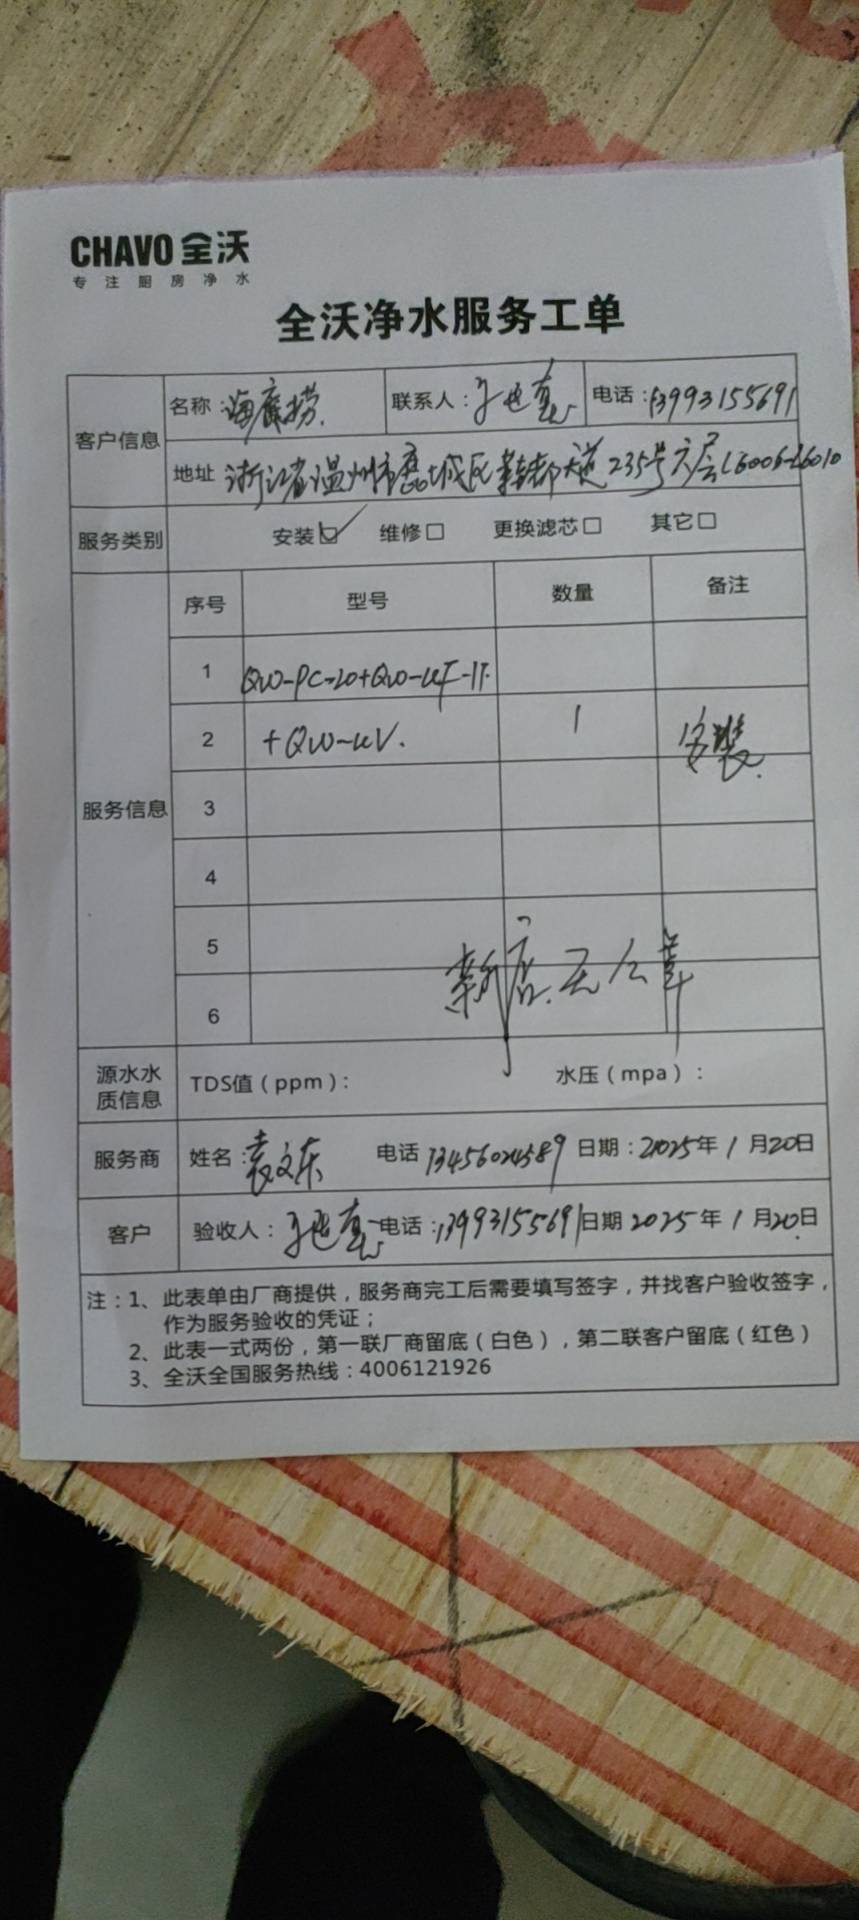 CHAVO 全沃
专注厨房净水
全沃净水服务工单
客户信息 名称：海底捞. 联系人： 电话：13993155691
地址 浙江省温州市鹿城区 大道235号六层L6006-L6010
服务类别 安装☑ 维修□ 更换滤芯□ 其它□
服务信息 序号 型号 数量 备注
1 QW-PC-20+QW-UF-1T.
2 +QW-UV. 1 安装.
3
4
5
新店.无公章
6
源水水质信息 TDS值（ppm）： 水压（mpa）：
服务商 姓名：袁文东 电话 13456024589 日期：2025年1月20日
客户 验收人： 电话：13993155691 日期 2025年1月20日
注：1、此表单由厂商提供，服务商完工后需要填写签字，并找客户验收签字，
作为服务验收的凭证；
2、此表一式两份，第一联厂商留底（白色），第二联客户留底（红色）
3、全沃全国服务热线：4006121926